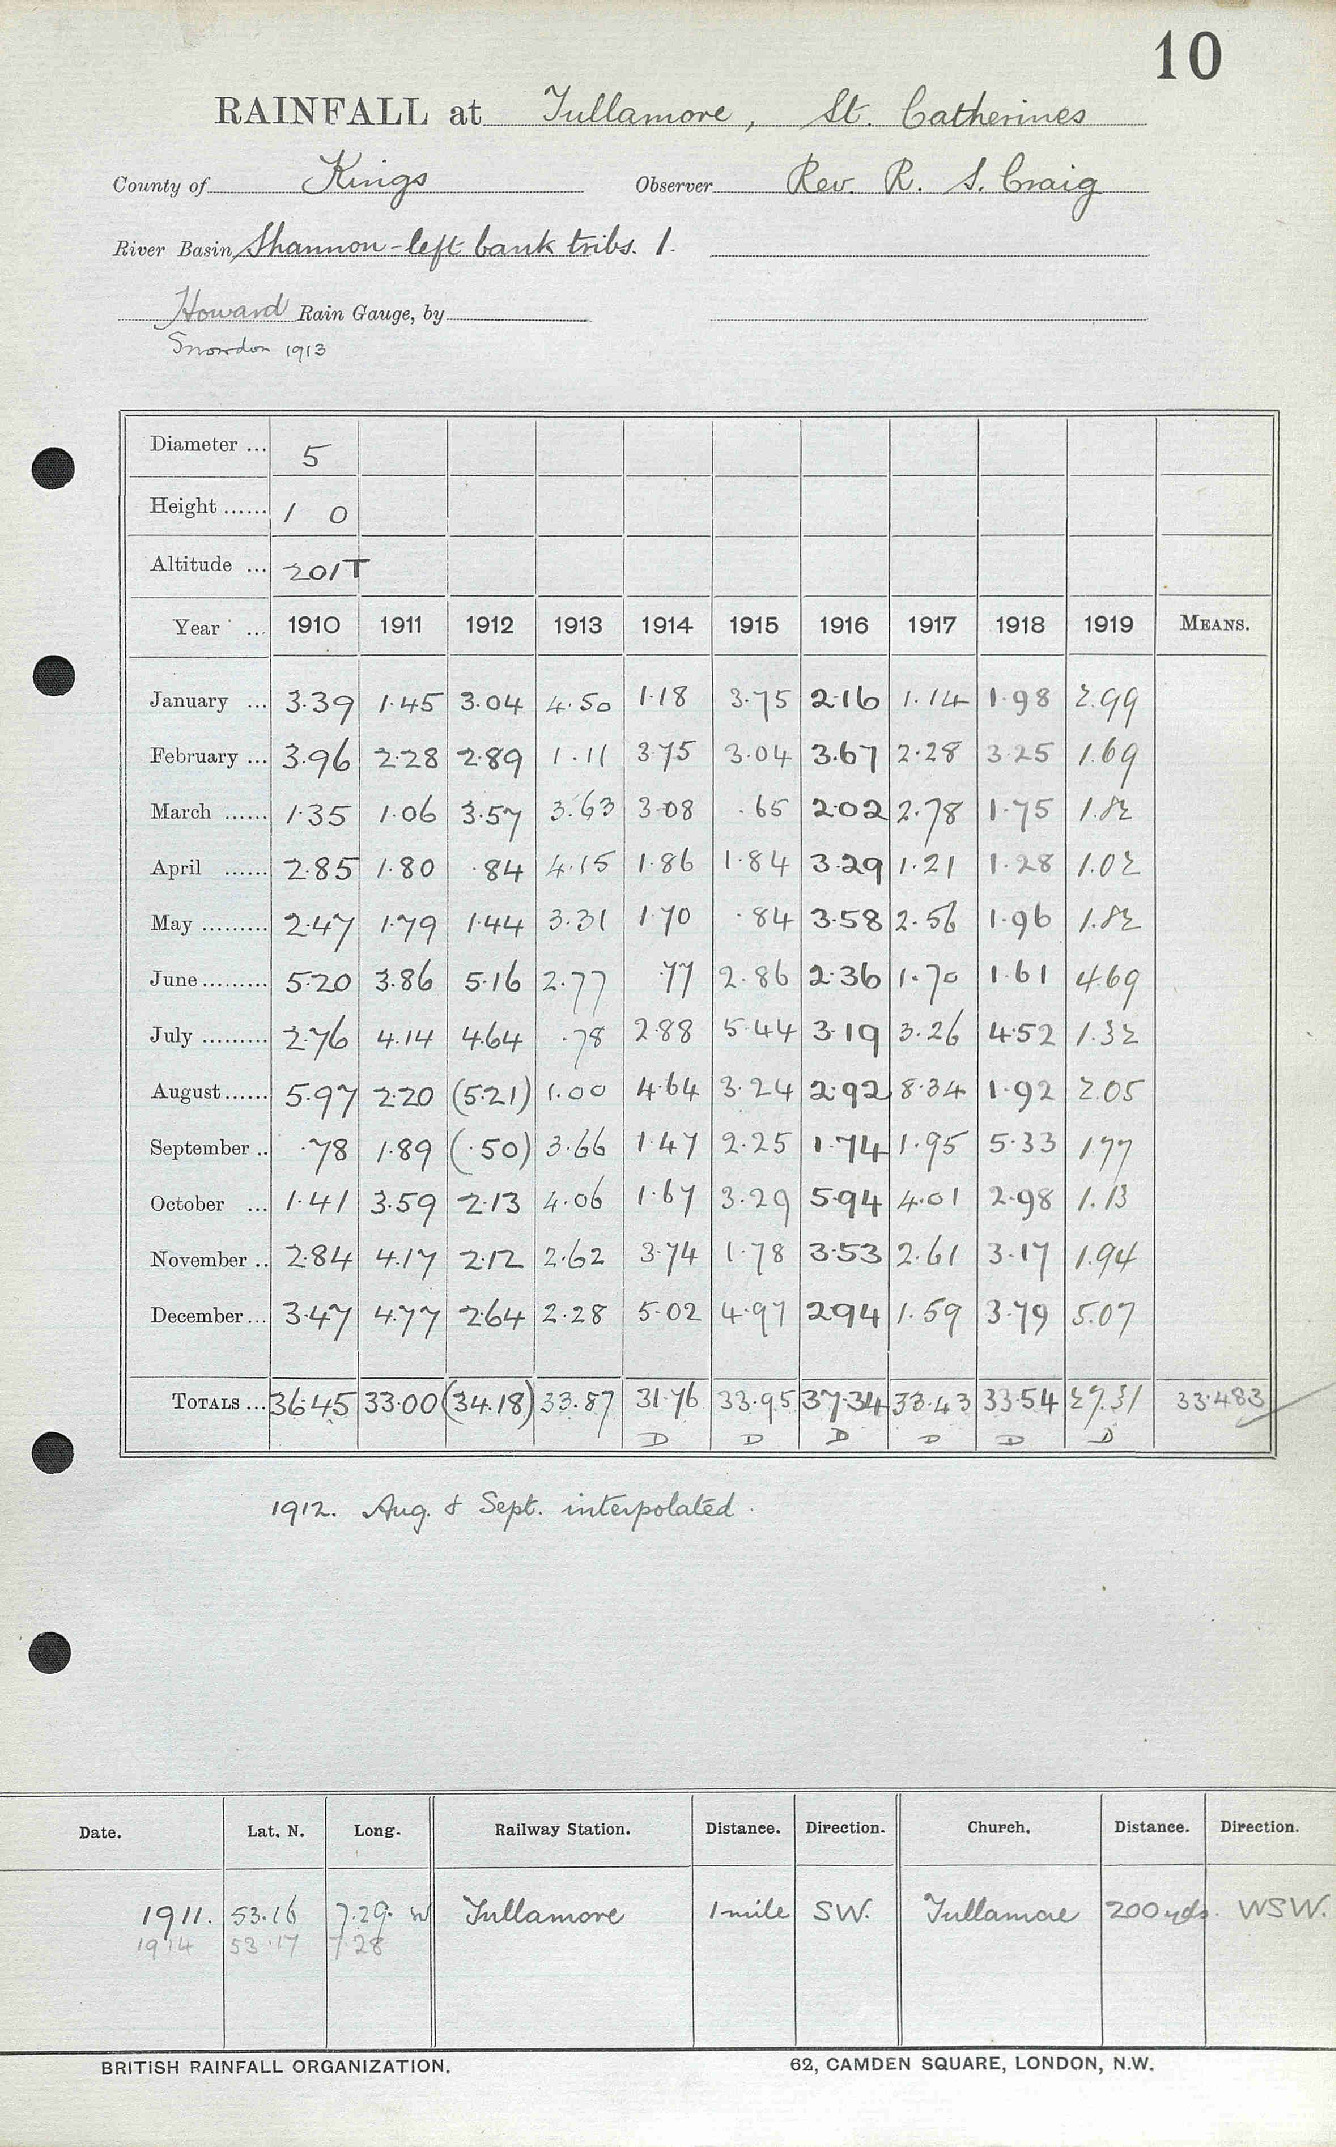 10
RAINFALL at Tullamore, St. Catherines
County of Kings Observer Rev. R. S. Craig
River Basin Shannon - left bank tribs. 1.
Howard Rain Gauge, by
Snowdon 1913
Diameter ... 5
Height ...... 1 0
Altitude ... 201T
Year ... 1910 1911 1912 1913 1914 1915 1916 1917 1918 1919 MEANS.
January ... 3.39 1.45 3.04 4.50 1.18 3.75 2.16 1.14 1.98 2.99
February ... 3.96 2.28 2.89 1.11 3.75 3.04 3.67 2.28 3.25 1.69
March ...... 1.35 1.06 3.57 3.63 3.08 .65 2.02 2.78 1.75 1.82
April ...... 2.85 1.80 .84 4.15 1.86 1.84 3.29 1.21 1.28 1.02
May ......... 2.47 1.79 1.44 3.31 1.70 .84 3.58 2.56 1.96 1.82
June ......... 5.20 3.86 5.16 2.77 .77 2.86 2.36 1.70 1.61 4.69
July ......... 2.76 4.14 4.64 .78 2.88 5.44 3.19 3.26 4.52 1.32
August ...... 5.97 2.20 (5.21) 1.00 4.64 3.24 2.92 8.34 1.92 2.05
September .. .78 1.89 (.50) 3.66 1.47 2.25 1.74 1.95 5.33 1.77
October ... 1.41 3.59 2.13 4.06 1.67 3.29 5.94 4.01 2.98 1.13
November .. 2.84 4.17 2.12 2.62 3.74 1.78 3.53 2.61 3.17 1.94
December ... 3.47 4.77 2.64 2.28 5.02 4.97 2.94 1.59 3.79 5.07
TOTALS ... 36.45 33.00 (34.18) 33.87 31.76 33.95 37.34 33.43 33.54 27.31 33.483
D D D D D D
1912. Aug. & Sept. interpolated.
Date. Lat. N. Long. Railway Station. Distance. Direction. Church. Distance. Direction.
1911. 53.16 7.29. W Tullamore 1 mile SW. Tullamore 200 yds. WSW.
1914 53.17 7.28
BRITISH RAINFALL ORGANIZATION. 62, CAMDEN SQUARE, LONDON, N.W.